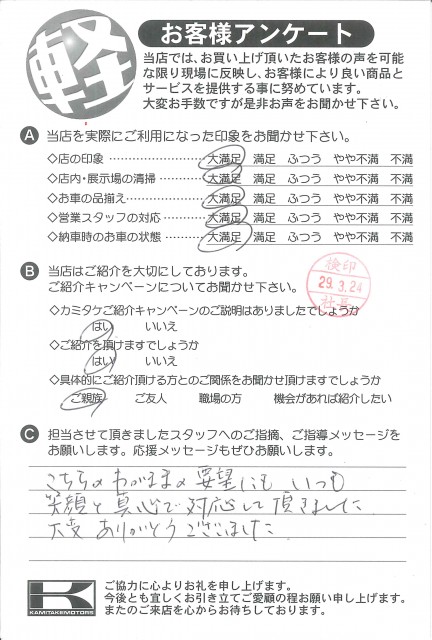 軽
お客様アンケート
当店では、お買い上げ頂いたお客様の声を可能
な限り現場に反映し、お客様により良い商品と
サービスを提供する事に努めています。
大変お手数ですが是非お声をお聞かせ下さい。
A 当店を実際にご利用になった印象をお聞かせ下さい。
◇店の印象 ‥‥‥‥‥‥‥ 大満足 満足 ふつう やや不満 不満
◇店内・展示場の清掃‥‥‥ 大満足 満足 ふつう やや不満 不満
◇お車の品揃え‥‥‥‥‥‥ 大満足 満足 ふつう やや不満 不満
◇営業スタッフの対応‥‥‥ 大満足 満足 ふつう やや不満 不満
◇納車時のお車の状態‥‥‥ 大満足 満足 ふつう やや不満 不満
B 当店はご紹介を大切にしております。
ご紹介キャンペーンについてお聞かせ下さい。
検印
29.3.24
社長
◇カミタケご紹介キャンペーンのご説明はありましたでしょうか
はい いいえ
◇ご紹介を頂けますでしょうか
はい いいえ
◇具体的にご紹介頂ける方とのご関係をお聞かせ頂けますでしょうか
ご親族 ご友人 職場の方 機会があれば紹介したい
C 担当させて頂きましたスタッフへのご指摘、ご指導メッセージを
お願いします。応援メッセージもぜひお願いします。
こちらのわがままの要望にもいつも
笑顔と真心で対応して頂きました
大変ありがとうございました
K
KAMITAKEMOTORS
ご協力に心よりお礼を申し上げます。
今後とも宜しくお引き立てご愛顧の程お願い申し上げます。
またのご来店を心からお待ちしております。